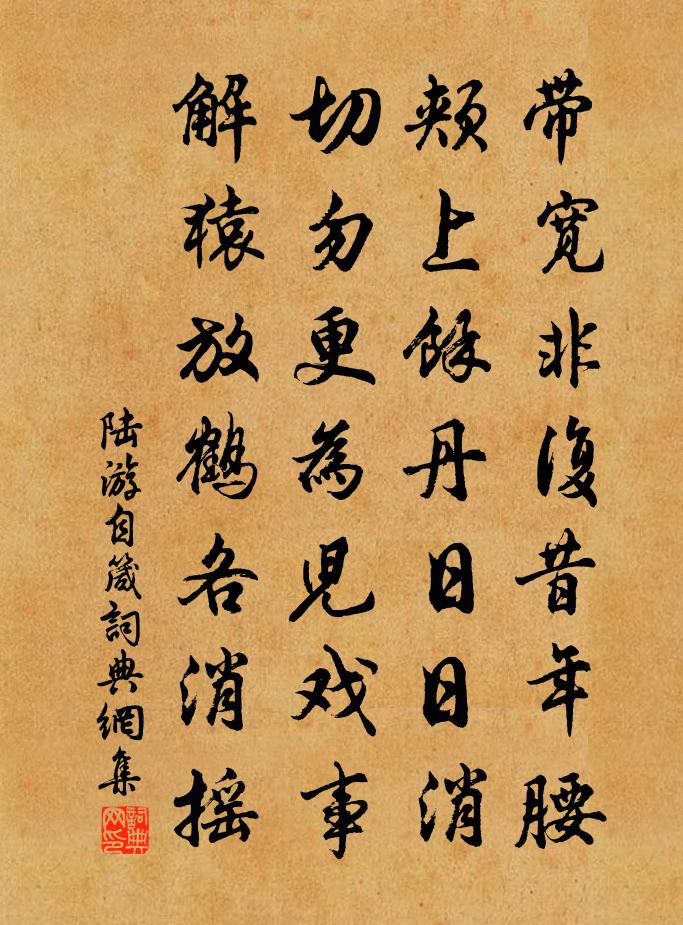 带宽非復昔年腰
颊上餘丹日日消
切勿更為児戏事
解猿放鹤各消摇
陆游自箴詞典網集
詞典网印